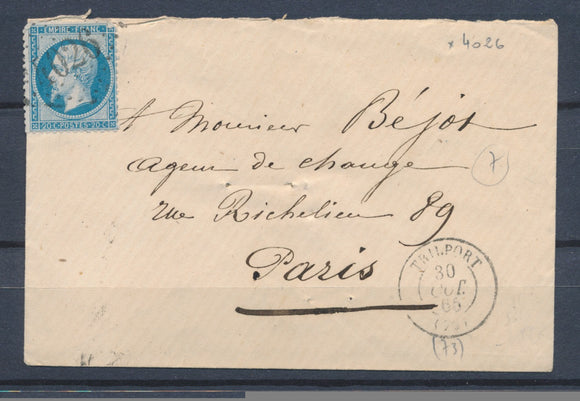 EMPIRE FRANC
20 C POSTES 20 C
4026
x 4026
A Monsieur Béjot
agent de change
7
rue Richelieu 89
Paris
TRILPORT
30
66
(73)